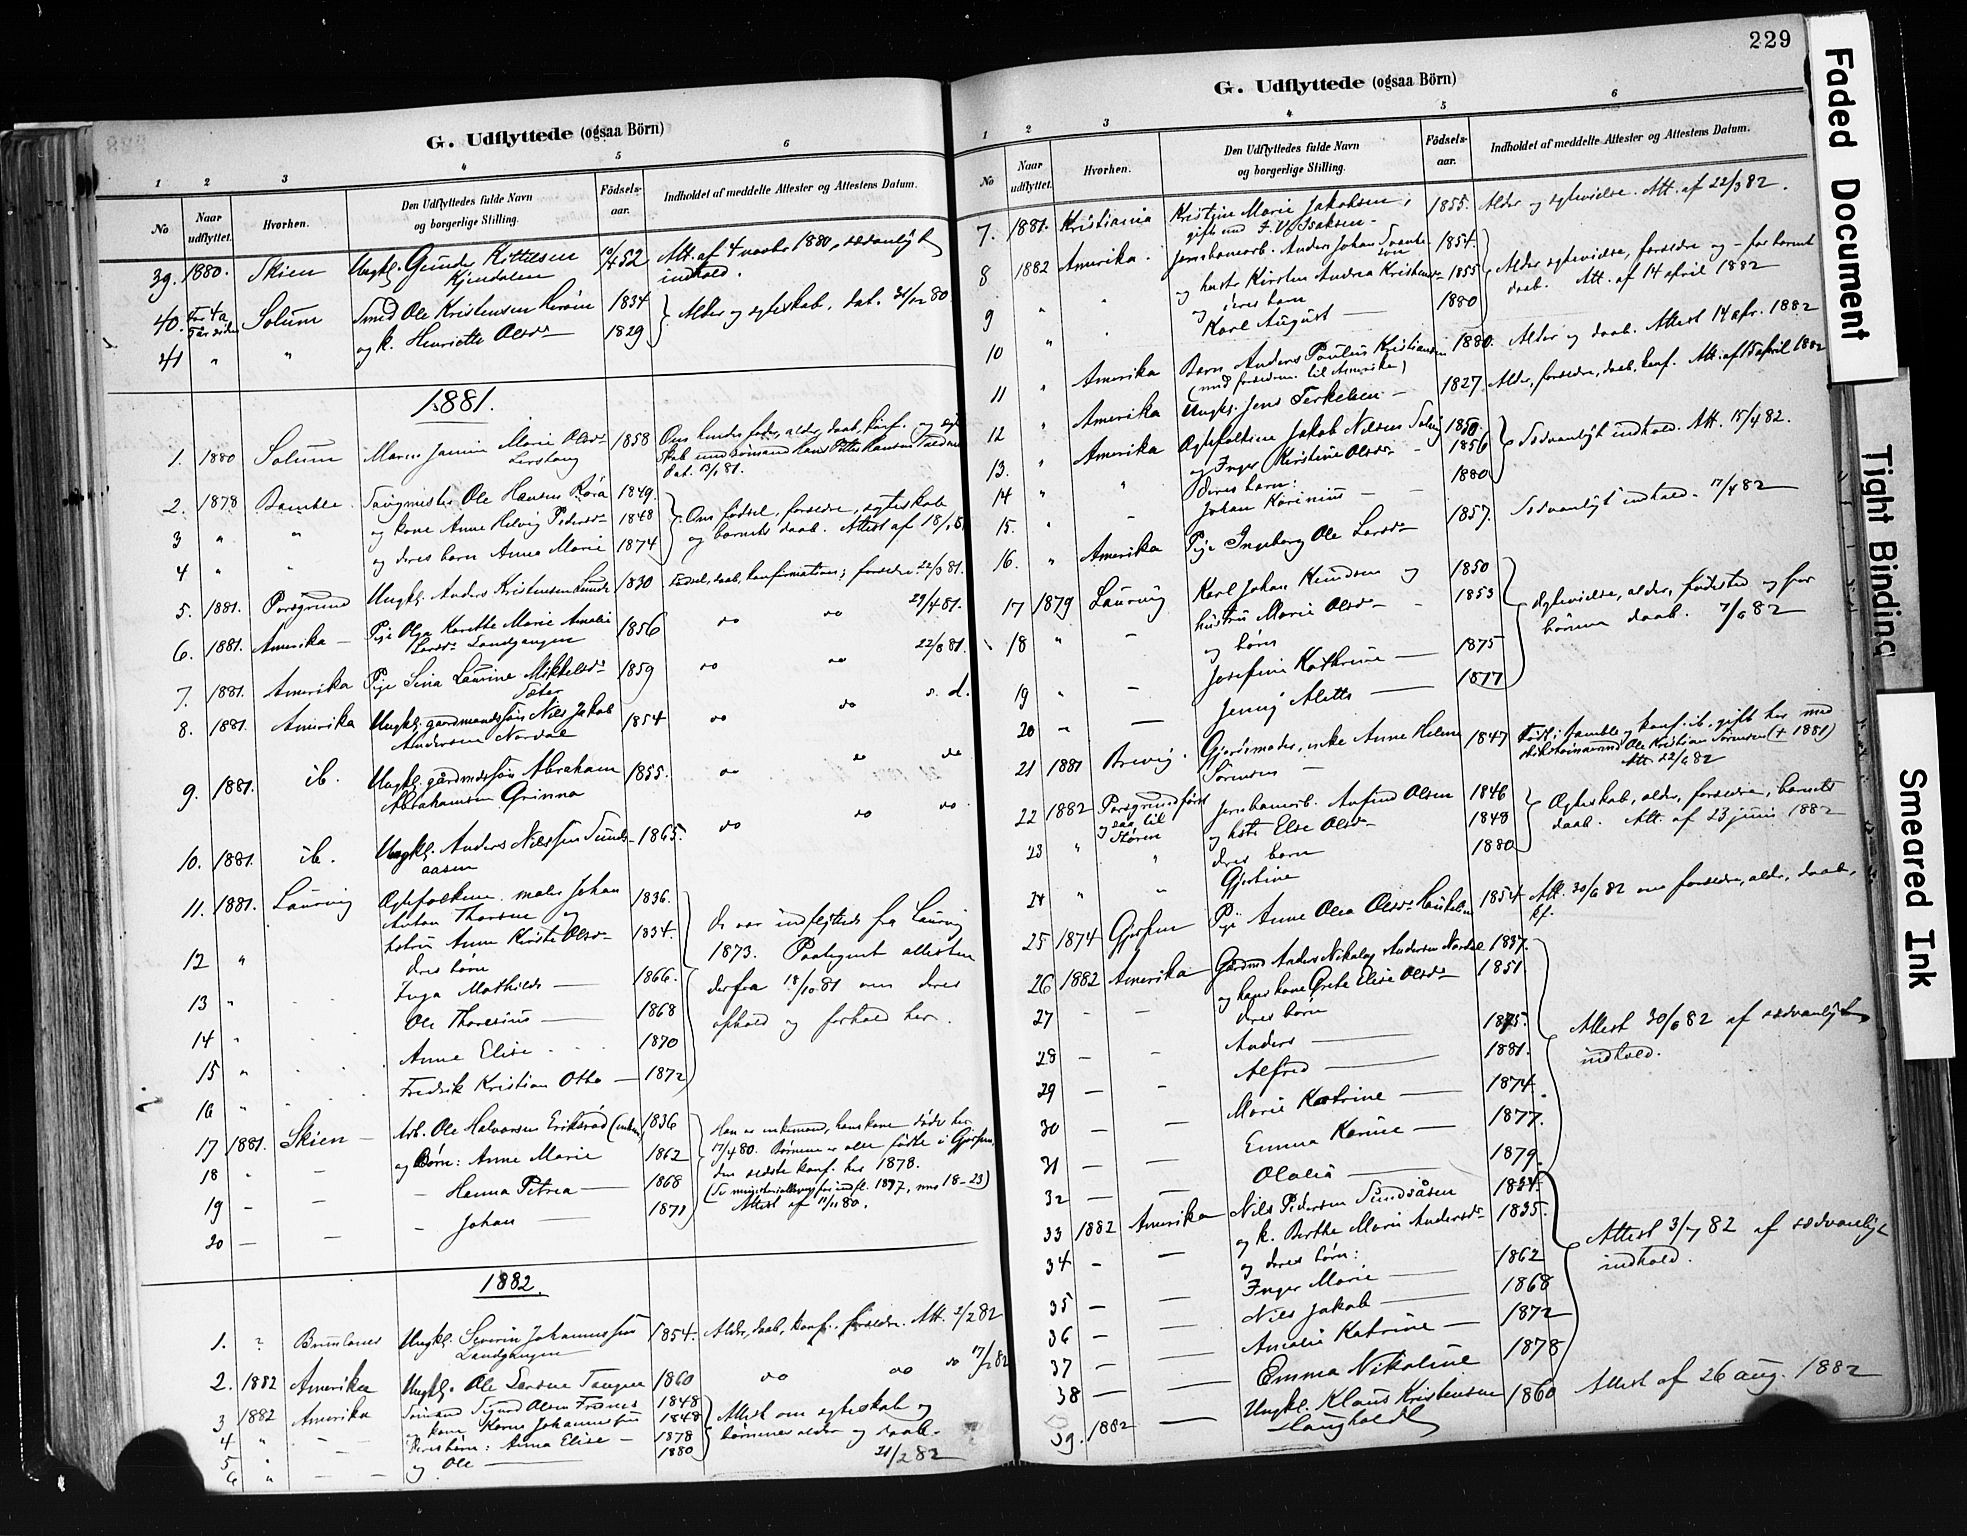 229
Faded Document
Tight Binding
Smeared Ink
G. Udflyttede (ogsaa Börn)
1 2 3 4 5 6
No Naar udflyttet. Hvorhen. Den Udflyttedes fulde Navn og borgerlige Stilling. Födsels-aar. Indholdet af meddelte Attester og Attestens Datum.
39. 1880. Skien Ungkl. Gunder Kittilsen 52 Att. af 4 novbr 1880, sædvanligt
indhold.
40. Solum Smed Ole Kristensen 1834 Alder og egteskab, dat. 31/12 80
41 " " og k. Henriette Olsdr 1829
1881.
1. 1880 Solum Maren Marie Olsdr 1858 Om hendes fader, alder, daab, konf.
dat. 13/1 81.
2. 1878 Bamble Ole Hansen 1849 Om fødsel, forældre, egteskab
3 " " og kone Anne Helvig Pedersdr 1848 og barnets daab. Attest af
4 " " og deres barn Anna Marie 1874
5. 1881. Porsgrund Ungkl. Anders Kristensen Lunde 1830 Fødsel, daab, konfirmation, forældre. 22/3 81.
6. 1881. Amerika Pige Olga Karette Marie Amalie 1856 do do 29/4 81.
Larsdr Landgangen
7. 1881. Amerika Pige Sina Laurine Mikkelsdr 1859 do do 22/8 81.
8. 1881. Amerika Ungkl. gaardmandssøn Nils Jakob 1854 do do s. d.
Andersen Nordal
9. 1881. ib. Ungkl. Abraham 1855. do do do
Abrahamsen Grinna
10. 1881. ib. Ungkl. Anders Nilssen Sunds- 1865. do do do
aasen
11. 1881. Laurvig Egtefolkene maler Johan 1836.
Anton Thorsen og
12 " hstru Anne Kirstine Olsdr 1834. De var indflyttede fra Laurvig
deres børn 1873. Paategnet attesten
13 " Inga Mathilde 1866. derfra 18/10 81 om deres
14 " Ole Thoresius 1868 ophold og forhold her.
15 " Anne Elise 1870
16 " Fredrik Kristian Otto 1872
17 1881. Skien Arb. Ole Halvorsen Eriksrød 1836 Han er enkemand, hans kone døde her
18 " og Børn: Anne Marie 1862 17/4 80. Børnene er alle fødte i Gjerpen,
19 Hanna Petrea 1868 den ældste konf. her 1878.
20 Johan 1871 1877, nro 18-23)
Attest af
1882.
1. ? Ungkl. Severin Johannessen 1854. Alder, daab, konf. forældre. Att. 2/2 82
Landgangen
2. 1882 Amerika Ungkl. Ole Larsen Tangen 1860 do do do 17/2 82
3 1882 Amerika Sømand Sigurd Olsen 1848 Attest om egteskab og
4 " og kone Karen 1848 børnenes alder og daab.
5 " Deres børn: Anna Elise 1878
6 " og Ole 1880 21/2 82
G. Udflyttede (ogsaa Börn)
1 2 3 4 5 6
No Naar udflyttet. Hvorhen. Den Udflyttedes fulde Navn og borgerlige Stilling. Födsels-aar. Indholdet af meddelte Attester og Attestens Datum.
7. 1881. Kristiania Kristine Marie Jakobsen, 1855. Alder og egtevielse. Att. af 22/3 82.
gift med J. V. Isaksen
8 1882 Amerika. Jernbanearb. Anders Johan 1854.
9 " " og hustr Kirsten Andrea Kristensdr 1855 Alder, egtevielse, forældre og - for barnet
og deres barn daab. Att. af 14 april 1882
" Karl August 1880
10 " Amerika Barn Anders Paulus Kristiansen 1880. Alder og daab. Attest 14 apr. 1882
(med forældrene til Amerika)
11 " Amerika Ungkl. Jens Terkelsen 1827 Alder, forældre, daab, konf. Att. af 15 april 1882
12 " Amerika Egtefolkene Jakob Nilsen 1850. Sædvanligt indhold. Att. 15/4 82.
13. " " og Inger Kirstine Olsdr 1856
14 " Deres barn: Johan Karinius 1880
15. " Amerika Pige Ingeborg Ole Larsdr 1857. Sædvanligt indhold. 17/4 82
17 1879 Laurvig Karl Johan Knudsen og 1850
18 " hustru Marie Olsdr 1853 Egtevielse, alder, fødested og for
og børn børnene daab. 7/6 82
19 " Josefine Kathrine 1875
20 Jenny Alette 1877
21 1881 Brevig. Gjordemoder, enke Anne Helene 1847 Født i Bamble, konf. ib. gift her med
Sørensen Ole Kristian Sørensen († 1881)
Att. 22/6 82
22 1882 Porsgrund først Jernbanearb. Anfind Olsen 1846
og saa til Støren og hstr Else Olsdr 1848 Egteskab, alder, forældre, barnets
23 " " deres barn daab. Att. af 23 juni 1882
24 " " Gjertine 1880
25 1874 Gjerpen Pige Anne Olea Olsdr 1854 Att. 30/6 82 om forældre, alder, daab,
kf.
26 1882 Amerika Gårdmd Anders Nikolay Andersen Nordal 1837.
27 og hans kone Grete Elise Olsdr 1851
deres børn
28 Anders 1875. Attest 30/6 82 af sædvanligt
29 Alfred 1881. indhold.
30 Marie Katrine 1874.
31 Emma Karine 1877.
32 Olalia 1879.
33 1882 Amerika Nils Pedersen Sundsåsen 1834.
34 og k. Berthe Marie Andersdr 1835. Attest 3/7 82 af sædvanligt
og deres børn: indhold.
35 Inger Marie 1862
36 Nils Jakob 1868
37 Amalie Katrine 1872
38 Emma Nikoline 1878
39. 1882 Ungkl. Klaus Kristensen 1860 Attest af 26 aug. 1882
Langholdt